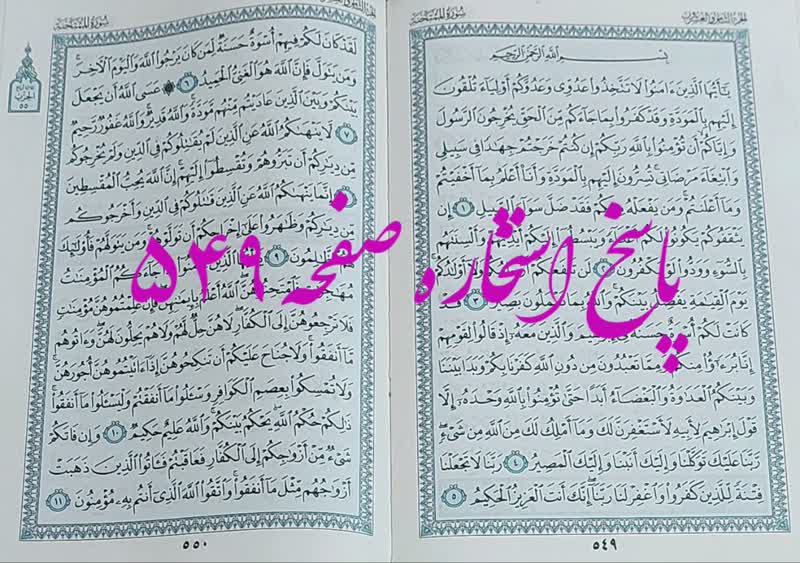 الجزء الثامن والعشرون
سورة الممتحنة
بِسْمِ اللَّهِ الرَّحْمَٰنِ الرَّحِيمِ
يَٰٓأَيُّهَا ٱلَّذِينَ ءَامَنُوا۟ لَا تَتَّخِذُوا۟ عَدُوِّى وَعَدُوَّكُمْ أَوْلِيَآءَ تُلْقُونَ
إِلَيْهِم بِٱلْمَوَدَّةِ وَقَدْ كَفَرُوا۟ بِمَا جَآءَكُم مِّنَ ٱلْحَقِّ يُخْرِجُونَ ٱلرَّسُولَ
وَإِيَّاكُمْ أَن تُؤْمِنُوا۟ بِٱللَّهِ رَبِّكُمْ إِن كُنتُمْ خَرَجْتُمْ جِهَٰدًا فِى سَبِيلِى
وَٱبْتِغَآءَ مَرْضَاتِى تُسِرُّونَ إِلَيْهِم بِٱلْمَوَدَّةِ وَأَنَا۠ أَعْلَمُ بِمَآ أَخْفَيْتُمْ
وَمَآ أَعْلَنتُمْ وَمَن يَفْعَلْهُ مِنكُمْ فَقَدْ ضَلَّ سَوَآءَ ٱلسَّبِيلِ ١ إِن
يَثْقَفُوكُمْ يَكُونُوا۟ وَيَبْسُطُوٓا۟ إِلَيْكُمْ أَيْدِيَهُمْ وَأَلْسِنَتَهُم
بِٱلسُّوٓءِ وَوَدُّوا۟ لَوْ تَكْفُرُونَ ٢ لَن تَنفَعَكُمْ أَوْلَٰدُكُمْ
يَوْمَ ٱلْقِيَٰمَةِ يَفْصِلُ بَيْنَكُمْ وَٱللَّهُ بِمَا تَعْمَلُونَ بَصِيرٌ ٣ قَدْ
كَانَتْ لَكُمْ أُسْوَةٌ حَسَنَةٌ فِىٓ وَٱلَّذِينَ مَعَهُۥٓ إِذْ قَالُوا۟ لِقَوْمِهِمْ
إِنَّا بُرَءَٰٓؤُا۟ مِنكُمْ وَمِمَّا تَعْبُدُونَ مِن دُونِ ٱللَّهِ كَفَرْنَا بِكُمْ وَبَدَا بَيْنَنَا
وَبَيْنَكُمُ ٱلْعَدَٰوَةُ وَٱلْبَغْضَآءُ أَبَدًا حَتَّىٰ تُؤْمِنُوا۟ بِٱللَّهِ وَحْدَهُۥٓ إِلَّا
قَوْلَ إِبْرَٰهِيمَ لِأَبِيهِ لَأَسْتَغْفِرَنَّ لَكَ وَمَآ أَمْلِكُ لَكَ مِنَ ٱللَّهِ مِن شَىْءٍ
رَّبَّنَا عَلَيْكَ تَوَكَّلْنَا وَإِلَيْكَ أَنَبْنَا وَإِلَيْكَ ٱلْمَصِيرُ ٤ رَبَّنَا لَا تَجْعَلْنَا
فِتْنَةً لِّلَّذِينَ كَفَرُوا۟ وَٱغْفِرْ لَنَا رَبَّنَآ إِنَّكَ أَنتَ ٱلْعَزِيزُ ٱلْحَكِيمُ ٥
٥٤٩
الجزء الثامن والعشرون
سورة الممتحنة
لَقَدْ كَانَ لَكُمْ فِيهِمْ أُسْوَةٌ حَسَنَةٌ لِّمَن كَانَ يَرْجُوا۟ ٱللَّهَ وَٱلْيَوْمَ ٱلْءَاخِرَ
وَمَن يَتَوَلَّ فَإِنَّ ٱللَّهَ هُوَ ٱلْغَنِىُّ ٱلْحَمِيدُ ٦ عَسَى ٱللَّهُ أَن يَجْعَلَ
بَيْنَكُمْ وَبَيْنَ ٱلَّذِينَ عَادَيْتُم مِّنْهُم مَّوَدَّةً وَٱللَّهُ قَدِيرٌ وَٱللَّهُ غَفُورٌ رَّحِيمٌ
٧ لَّا يَنْهَىٰكُمُ ٱللَّهُ عَنِ ٱلَّذِينَ لَمْ يُقَٰتِلُوكُمْ فِى ٱلدِّينِ وَلَمْ يُخْرِجُوكُم
مِّن دِيَٰرِكُمْ أَن تَبَرُّوهُمْ وَتُقْسِطُوٓا۟ إِلَيْهِمْ إِنَّ ٱللَّهَ يُحِبُّ ٱلْمُقْسِطِينَ
٨ إِنَّمَا يَنْهَىٰكُمُ ٱللَّهُ عَنِ ٱلَّذِينَ قَٰتَلُوكُمْ فِى ٱلدِّينِ وَأَخْرَجُوكُم
مِّن دِيَٰرِكُمْ وَظَٰهَرُوا۟ عَلَىٰٓ إِخْرَاجِكُمْ أَن تَوَلَّوْهُمْ وَمَن يَتَوَلَّهُمْ فَأُو۟لَٰٓئِكَ
هُمُ ٱلظَّٰلِمُونَ ٩ جَآءَكُمُ ٱلْمُؤْمِنَٰتُ
فَٱمْتَحِنُوهُنَّ ٱللَّهُ أَعْلَمُ بِإِيمَٰنِهِنَّ فَإِنْ عَلِمْتُمُوهُنَّ مُؤْمِنَٰتٍ
فَلَا تَرْجِعُوهُنَّ إِلَى ٱلْكُفَّارِ لَا هُنَّ حِلٌّ لَّهُمْ وَلَا هُمْ يَحِلُّونَ لَهُنَّ وَءَاتُوهُم
مَّآ أَنفَقُوا۟ وَلَا جُنَاحَ عَلَيْكُمْ أَن تَنكِحُوهُنَّ إِذَآ ءَاتَيْتُمُوهُنَّ أُجُورَهُنَّ
وَلَا تُمْسِكُوا۟ بِعِصَمِ ٱلْكَوَافِرِ وَسْـَٔلُوا۟ مَآ أَنفَقْتُمْ وَلْيَسْـَٔلُوا۟ مَآ أَنفَقُوا۟
ذَٰلِكُمْ حُكْمُ ٱللَّهِ يَحْكُمُ بَيْنَكُمْ وَٱللَّهُ عَلِيمٌ حَكِيمٌ ١٠ وَإِن فَاتَكُمْ
شَىْءٌ مِّنْ أَزْوَٰجِكُمْ إِلَى ٱلْكُفَّارِ فَعَاقَبْتُمْ فَـَٔاتُوا۟ ٱلَّذِينَ ذَهَبَتْ
أَزْوَٰجُهُم مِّثْلَ مَآ أَنفَقُوا۟ وَٱتَّقُوا۟ ٱللَّهَ ٱلَّذِىٓ أَنتُم بِهِۦ مُؤْمِنُونَ ١١
٥٥٠
پاسخ استخاره صفحه ۵۴۹